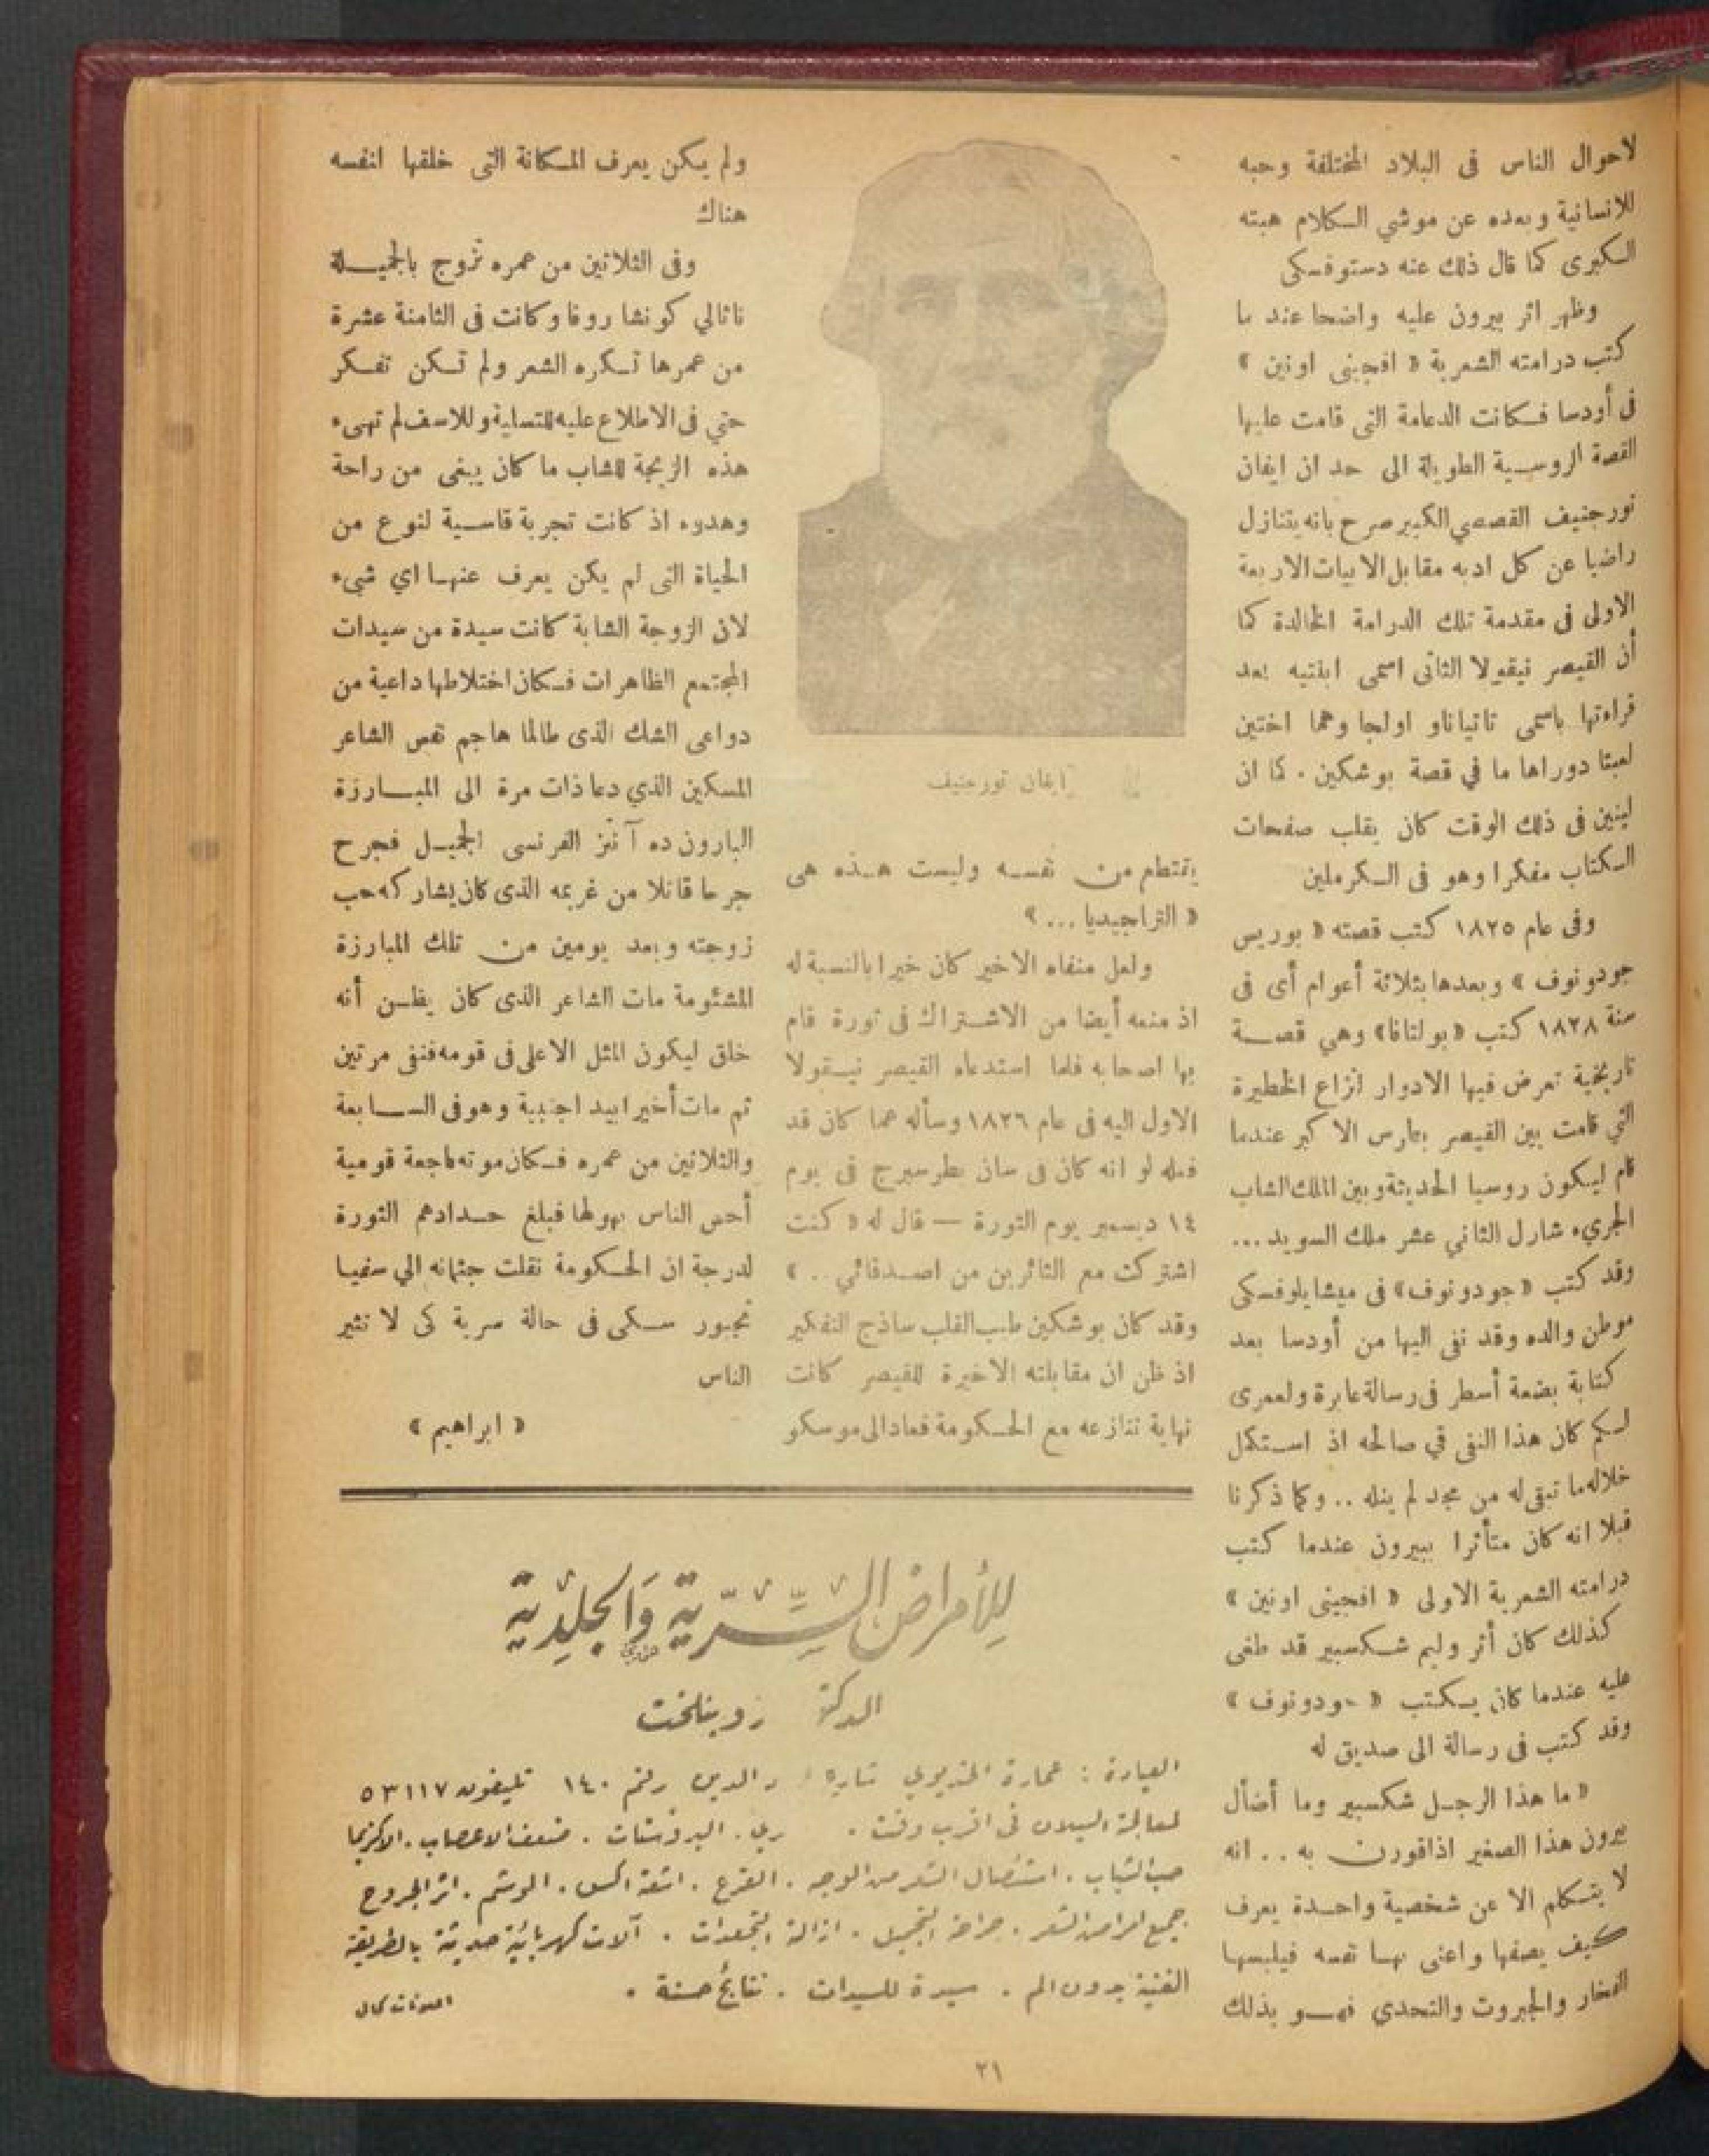 لاحوال الناس فى البلاد المختلفة وحبه
للانسانية وبعده عن موشي الكلام هبته
الكبرى كما قال ذلك عنه دستوفسكى
وظهر اثر بيرون عليه واضحا عند ما
كتب درامته الشعرية « افجينى اونين »
فى أودسا فكانت الدعامة التى قامت عليها
القصة الروسية الطويلة الى حد ان ايفان
تورجنيف القصصي الكبير صرح بانه يتنازل
راضيا عن كل ادبه مقابل الابيات الاربعة
الاولى فى مقدمة تلك الدرامة الخالدة كما
أن القيصر نيقولا الثانى اسمى ابنتيه بعد
قراءتها باسمى تاتياناو اولجا وهما اختين
لعبتا دوراها ما في قصة بوشكين . كما ان
لينين فى ذلك الوقت كان يقلب صفحات
الكتاب مفكرا وهو فى الكرملين
وفى عام ١٨٢٥ كتب قصته « بوريس
جودونوف » وبعدها بثلاثة أعوام أى فى
سنة ١٨٢٨ كتب «بولتافا» وهي قصة
تاريخية تعرض فيها الادوار انزاع الخطيرة
التي قامت بين القيصر بطرس الاكبر عندما
قام ليكون روسيا الحديثة وبين الملك الشاب
الجريء شارل الثاني عشر ملك السويد ...
وقد كتب «جودونوف» فى ميشايلوفسكى
موطن والده وقد نفى اليها من أودسا بعد
كتابة بضعة أسطر فى رسالة عابرة ولعمرى
لكم كان هذا النفى في صالحه اذ استكمل
خلاله ما تبقى له من مجد لم ينله .. وكما ذكرنا
قبلا انه كان متأثرا ببيرون عندما كتب
درامته الشعرية الاولى « افجينى اونين »
كذلك كان أثر وليم شكسبير قد طغى
عليه عندما كان يكتب « جودونوف »
وقد كتب فى رسالة الى صديق له
« ما هذا الرجل شكسبير وما أضأل
بيرون هذا الصغير اذاقورن به .. انه
لا يتكلم الا عن شخصية واحدة يعرف
كيف يصفها واعنى بها نفسه فيلبسها
الفخار والجبروت والتحدي فهو بذلك
ايفان تورجنيف
يقتطع من نفسه وليست هذه هى
« التراجيديا ... »
ولعل منفاه الاخير كان خيرا بالنسبة له
اذ منعه أيضا من الاشتراك فى ثورة قام
بها اصحابه فلما استدعاه القيصر نيقولا
الاول اليه فى عام ١٨٢٦ وسأله عما كان قد
فعله لو انه كان فى سان بطرسبرج فى يوم
١٤ ديسمبر يوم الثورة — قال له « كنت
اشتركت مع الثائرين من اصدقائي .. »
وقد كان بوشكين طيب القلب ساذج التفكير
اذ ظن ان مقابلته الاخيرة للقيصر كانت
نهاية تنازعه مع الحكومة فعاد الى موسكو
ولم يكن يعرف المكانة التى خلقها لنفسه
هناك
وفى الثلاثين من عمره تزوج بالجميلة
ناتالي كونشاروفا وكانت فى الثامنة عشرة
من عمرها تكره الشعر ولم تكن تفكر
حتي فى الاطلاع عليه للتسلية وللاسف لم تهىء
هذه الزيجة للشاب ما كان يبغى من راحة
وهدوء اذ كانت تجربة قاسية لنوع من
الحياة التى لم يكن يعرف عنها اي شىء
لان الزوجة الشابة كانت سيدة من سيدات
المجتمع الظاهرات فكان اختلاطها داعية من
دواعى الشك الذى طالما هاجم نفس الشاعر
المسكين الذي دعا ذات مرة الى المبارزة
البارون ده آنتز الفرنسى الجميل فجرح
جرحا قاتلا من غريمه الذى كان يشاركه حب
زوجته وبعد يومين من تلك المبارزة
المشئومة مات الشاعر الذى كان يظن أنه
خلق ليكون المثل الاعلى فى قومه فنفى مرتين
ثم مات أخيرا بيد اجنبية وهو فى السابعة
والثلاثين من عمره فكان موته فاجعة قومية
أحس الناس بهولها فبلغ حدادهم الثورة
لدرجة ان الحكومة نقلت جثمانه الي سفيا
تجبور سكى فى حالة سرية كى لا تثير
الناس
« ابراهيم »
للأمراض السرية والجلدية
الدكتور زوينلخت
العيادة : عمارة الخديوي شارع الدين رقم ١٤٠ تليفون ٥٣١١٧
لمعالجة السيلان فى اقرب وقت . البروستات . ضعف الاعصاب . الاكزيما
حب الشباب . استئصال الشعر من الوجه . القرع . اشعة اكس . الوشم . اثر الجروح
جميع امراض الشعر . جراحة التجميل . ازالة التجعدات . آلات كهربائية حديثة بالطريقة
الفنية بدون الم . سيدة للسيدات . نتائج حسنة .
٢١